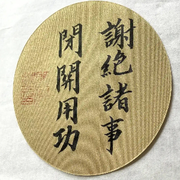 謝絕諸事
閉關用功